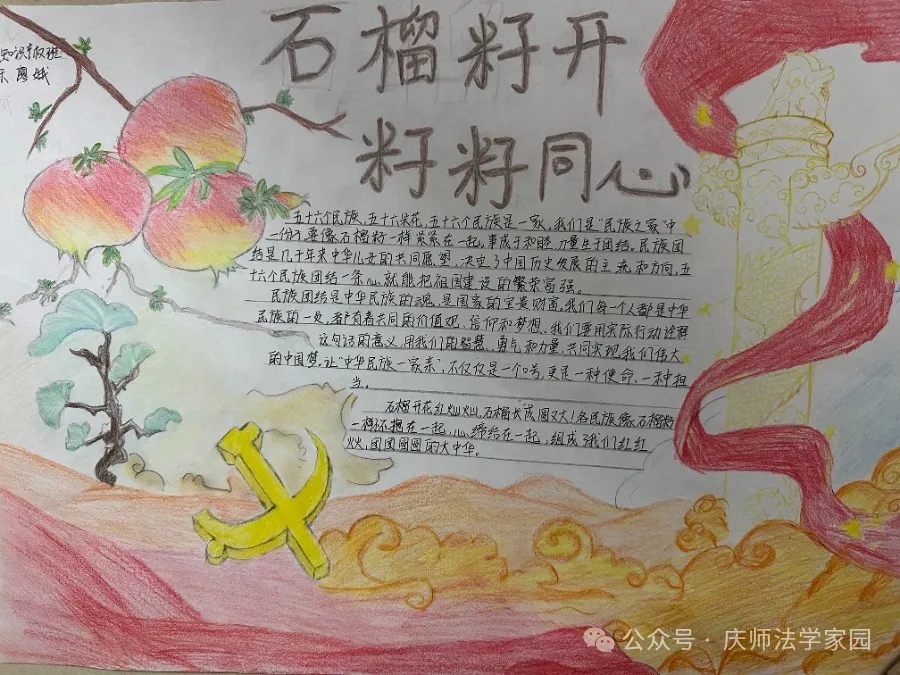 知识产权班
石榴籽开
籽籽同心
五十六个民族，五十六朵花，五十六个民族是一家，我们是“民族之家”中
一份子，要像石榴籽一样紧紧在一起。事成于和睦，力量生于团结。民族团
结是几千年来中华儿女的共同愿望，决定了中国历史发展的主流和方向，五
十六个民族团结一条心，就能把祖国建设的繁荣富强。
民族团结是中华民族的魂，是国家的宝贵财富。我们每一个人都是中华
民族的一处，都有着共同的价值观、信仰和梦想。我们要用实际行动诠释
这句话的意义，用我们的智慧、勇气和力量，共同实现我们伟大
的中国梦。让“中华民族一家亲”，不仅仅是一个口号，更是一种使命、一种担
当。
石榴开花红灿灿，石榴长成圆又大！各民族像石榴籽
一样环抱在一起，心缔结在一起，组成了我们红红
火火，团团圆圆的大中华。
公众号·庆师法学家园